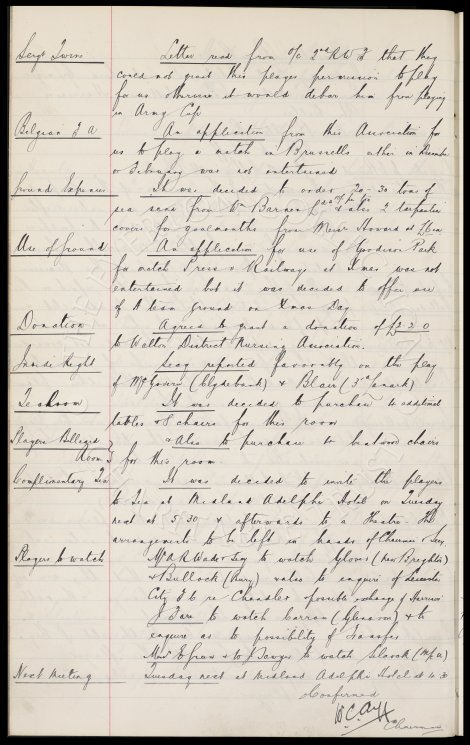 Sergt Irvine Letter read from O/C 2nd K.W.F that they
could not grant this player permission to play
for us otherwise it would debar him from playing
in Army Cup
Belgian F A An application from this Association for
us to play a match in Brussells either in December
or February was not entertained
Ground Expenses It was decided to order 20-30 tons of
sea sand from Wm Barnes & also 2 tarpaulin
covers for goalmouths from Messrs Howard
Use of Ground An application for use of Goodison Park
for match Press v Railway at Xmas was not
entertained but it was decided to offer use
of A team ground on Xmas Day
Donation Agreed to grant a donation of £2 2 0
to Walton District Nursing Association.
Inside Right Secy reported favorably on the play
of McGovern (Clydebank) & Blair (3rd Lanark)
Tearoom It was decided to purchase 4 additional
tables & 8 chairs for this room
Players Billiard & Also to purchase 4 bentwood chairs
Room for this room
Complimentary Tea It was decided to invite the players
to Tea at Midland Adelphi Hotel on Tuesday
next at 5.30 & afterwards to a Theatre. The
arrangements to be left in hands of Chairman & Secy.
Players to watch Mr A R Wade & Secy to watch Glover (New Brighton)
& Bullock (Bury) & also to enquire of Leicester
City F C re Chandler possible exchange of Harrison
J Fare to watch Curran (Glenavon) & to
enquire as to possibility of Transfer
Messrs E Green & W J Sawyer to watch
Next Meeting Tuesday next at Midland Adelphi Hotel at 4.30
Confirmed
W.C. Cuff
Chairman